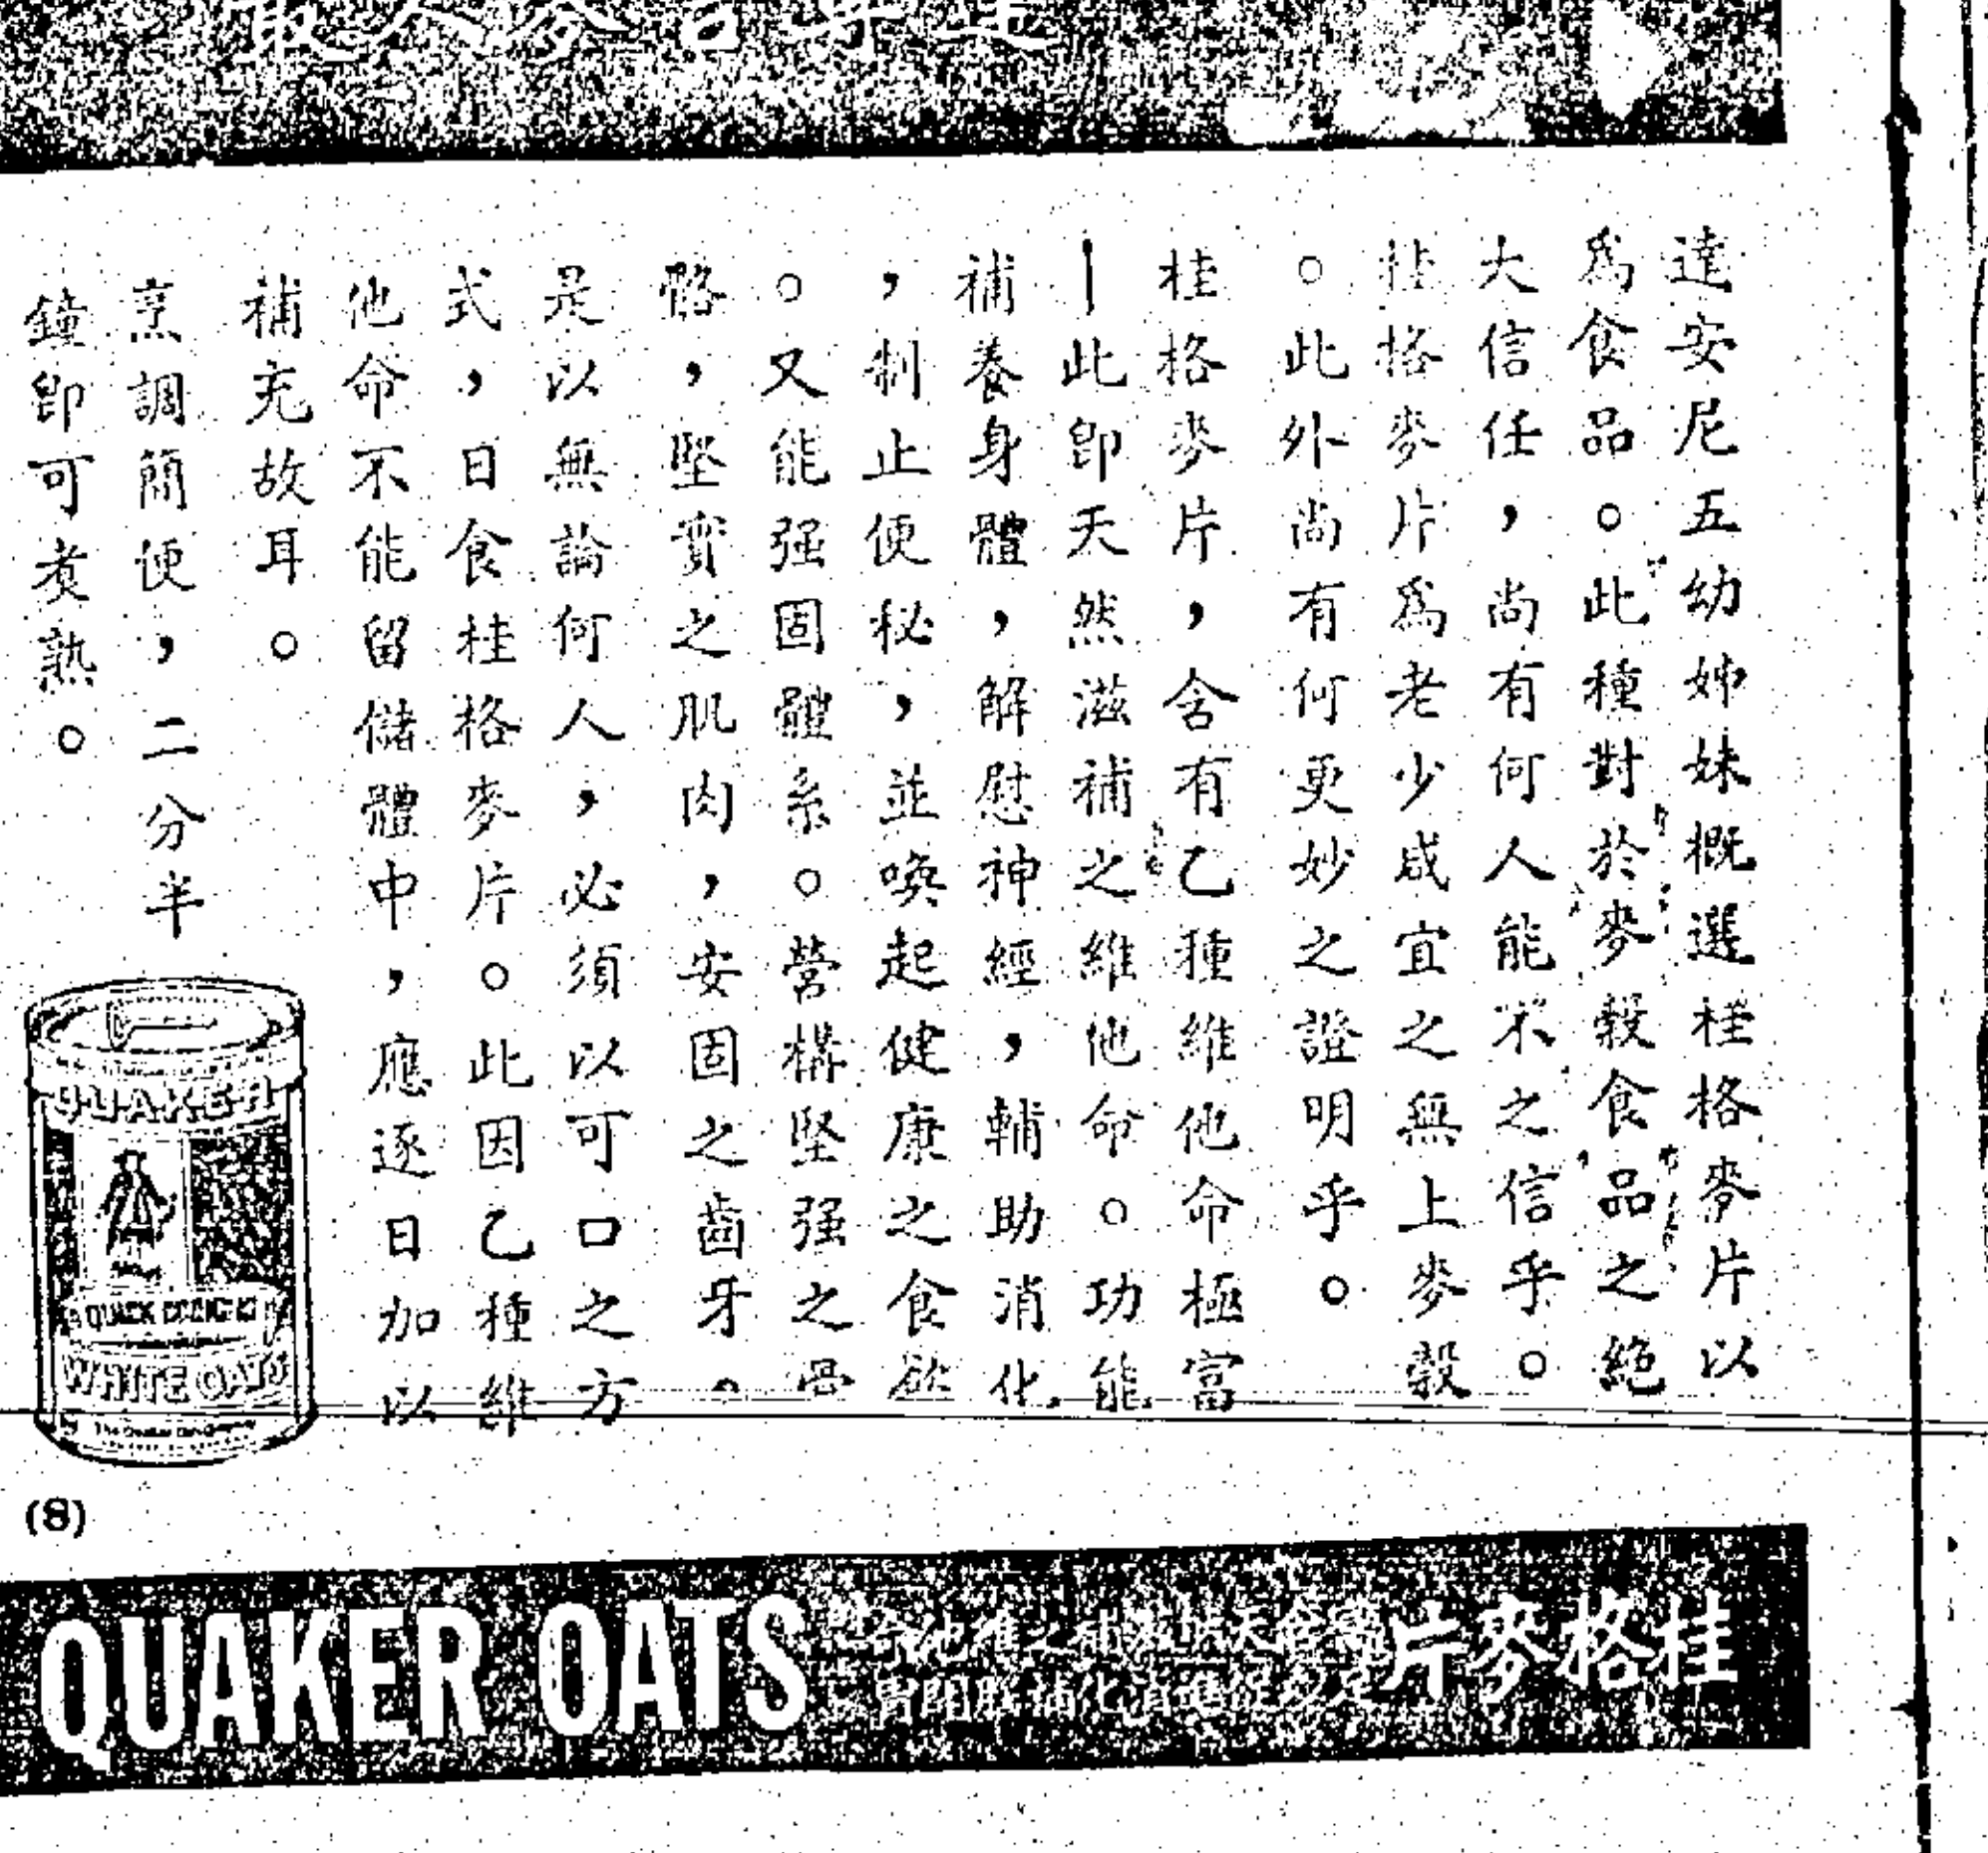 達安尼五幼姊妹概選桂格麥片以
爲食品。此種對於麥穀食品之絕
大信任，尚有何人能不之信乎。
桂格麥片爲老少咸宜之無上麥穀
。此外尚有何更妙之證明乎。
桂格麥片，含有乙種維他命極富
—此即天然滋補之維他命。功能
補養身體，解慰神經，輔助消化
，制止便秘，並喚起健康之食慾
。又能强固體系。營構堅强之骨
骼，堅實之肌肉，安固之齒牙。
是以無論何人，必須以可口之方
式，日食桂格麥片。此因乙種維
他命不能留儲體中，應逐日加以
補充故耳。
烹調簡便，二分半
鐘即可煮熟。
QUAKER
WHITE OATS
(8)
QUAKER OATS
片麥格桂